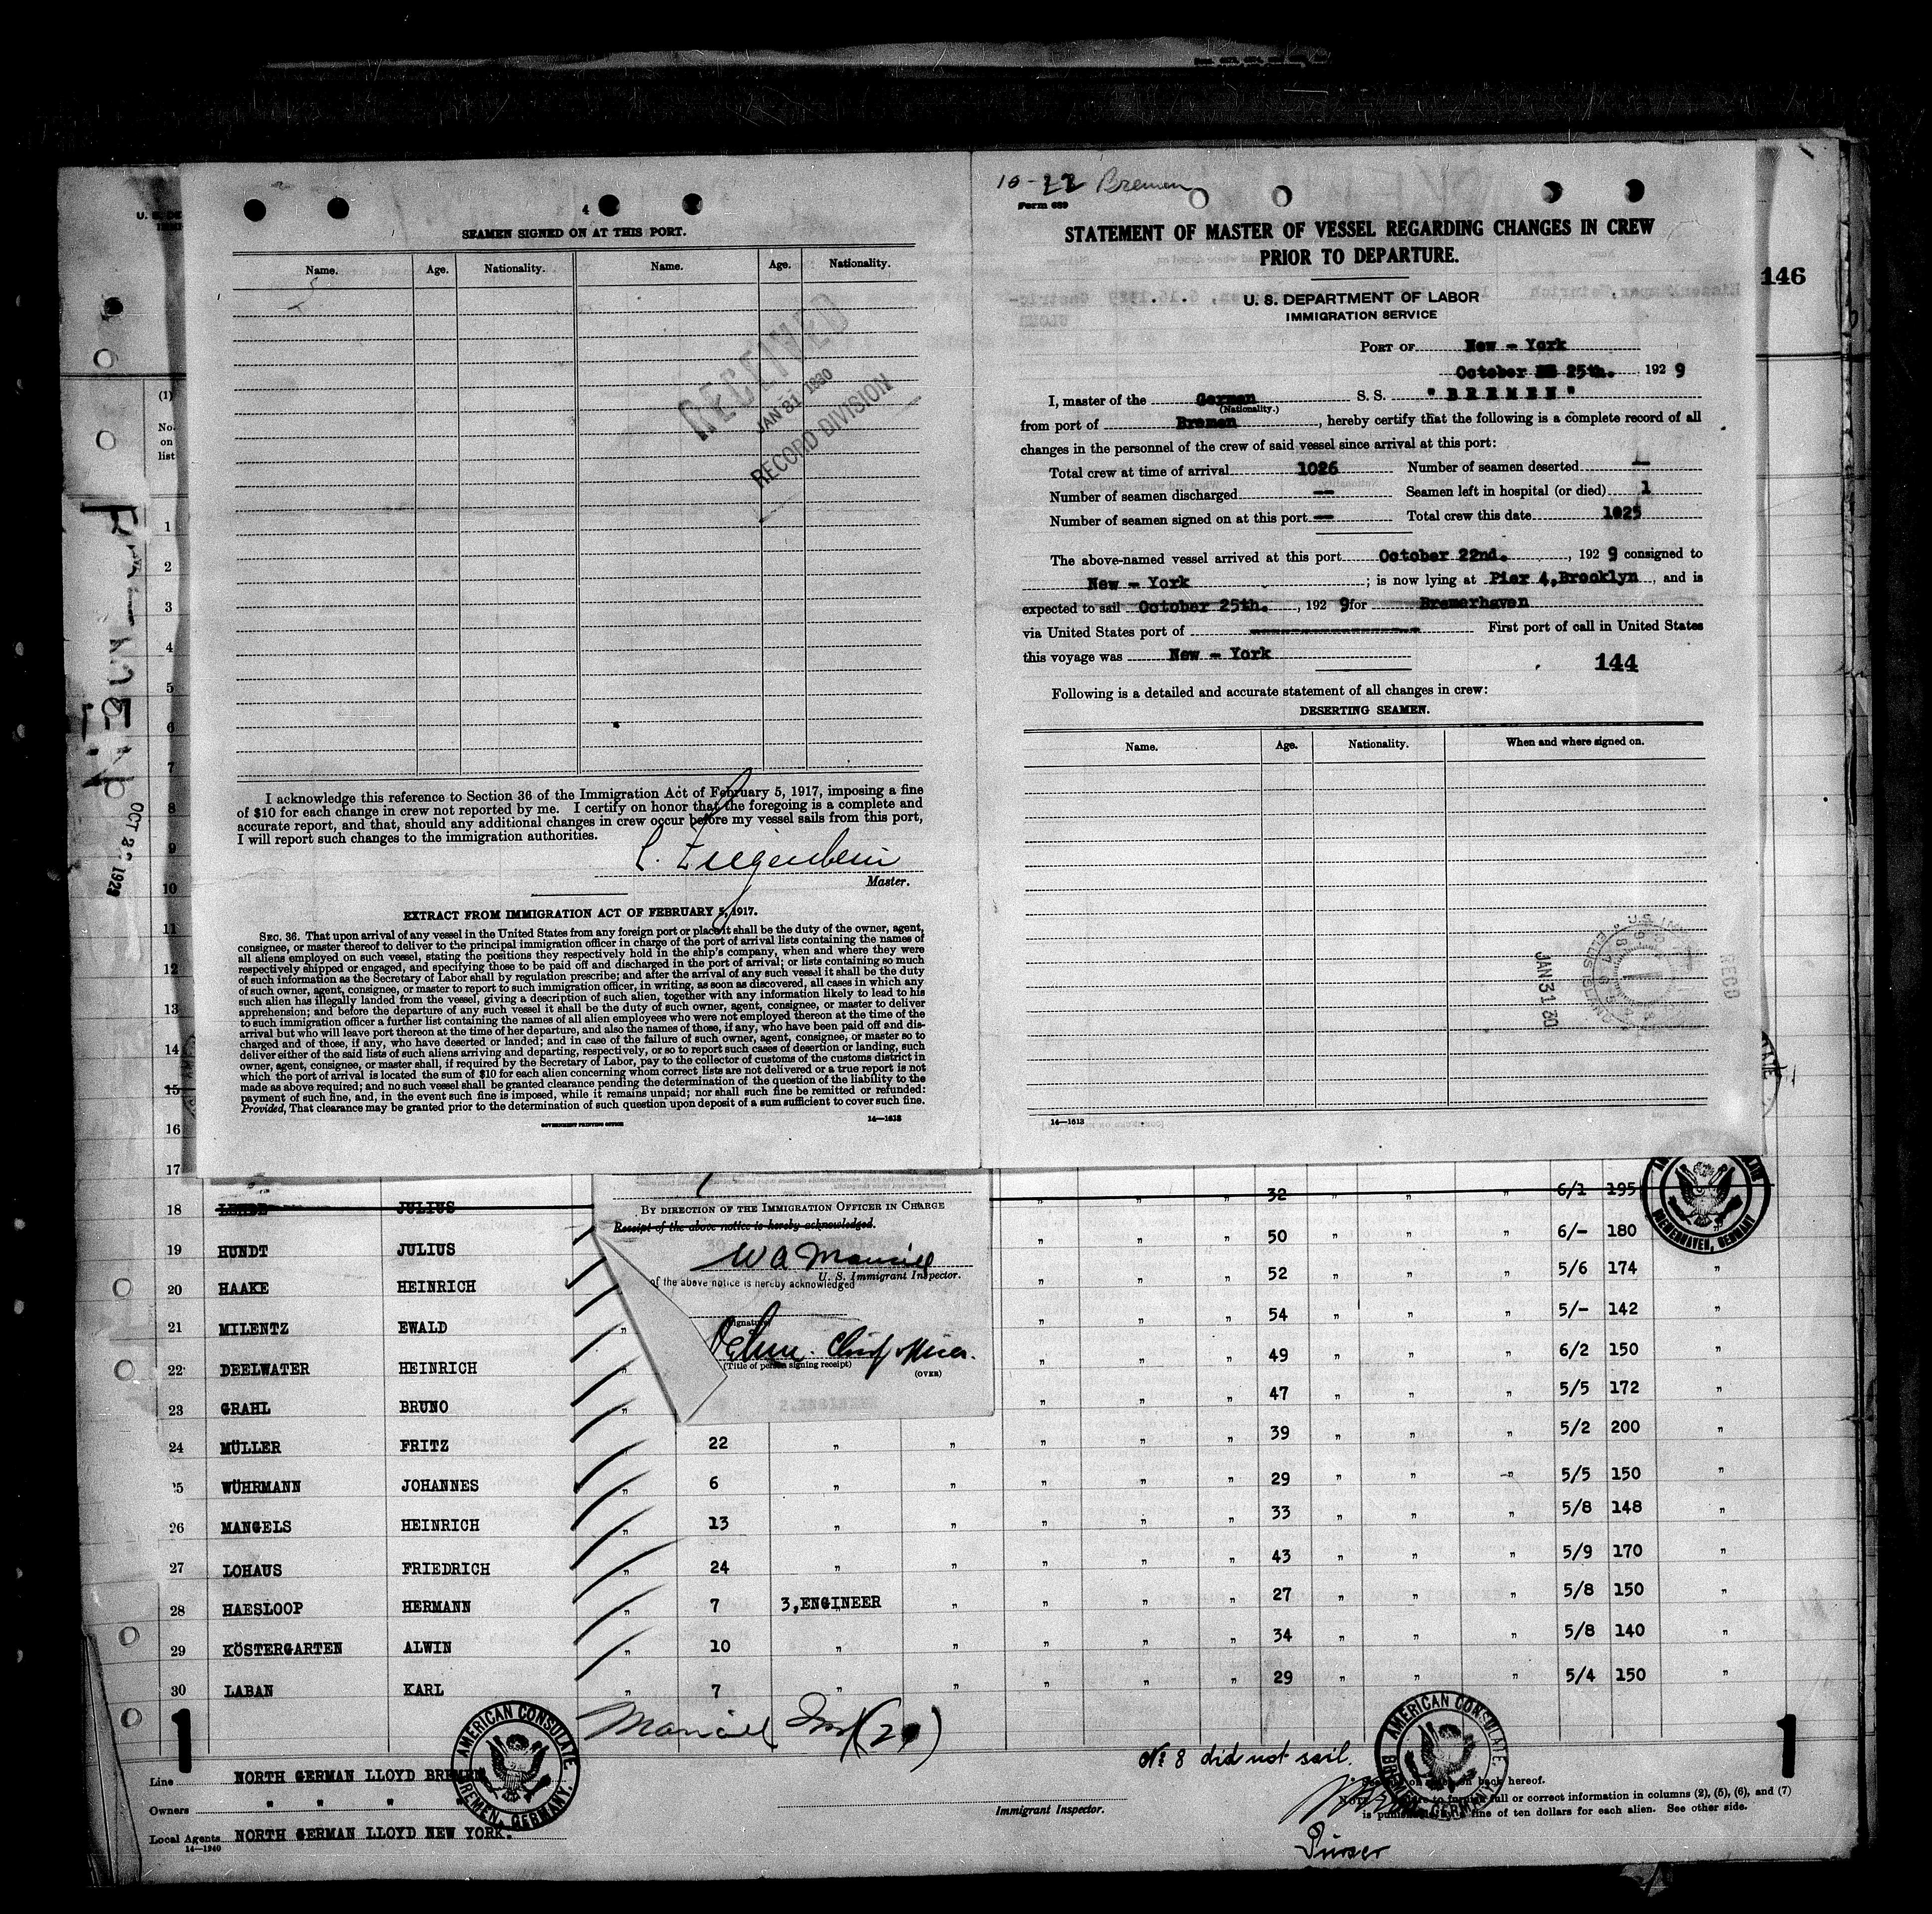 4
SEAMEN SIGNED ON AT THIS PORT.
Name. Age. Nationality. Name. Age. Nationality.
RECEIVED
JAN 31 1930
RECORD DIVISION
I acknowledge this reference to Section 36 of the Immigration Act of February 5, 1917, imposing a fine
of $10 for each change in crew not reported by me. I certify on honor that the foregoing is a complete and
accurate report, and that, should any additional changes in crew occur before my vessel sails from this port,
I will report such changes to the immigration authorities.
L. Ziegenbein
Master.
EXTRACT FROM IMMIGRATION ACT OF FEBRUARY 5, 1917.
SEC. 36. That upon arrival of any vessel in the United States from any foreign port or place it shall be the duty of the owner, agent,
consignee, or master thereof to deliver to the principal immigration officer in charge of the port of arrival lists containing the names of
all aliens employed on such vessel, stating the positions they respectively hold in the ship's company, when and where they were
respectively shipped or engaged, and specifying those to be paid off and discharged in the port of arrival; or lists containing so much
of such information as the Secretary of Labor shall by regulation prescribe; and after the arrival of any such vessel it shall be the duty
of such owner, agent, consignee, or master to report to such immigration officer, in writing, as soon as discovered, all cases in which any
such alien has illegally landed from the vessel, giving a description of such alien, together with any information likely to lead to his
apprehension; and before the departure of any such vessel it shall be the duty of such owner, agent, consignee, or master to deliver
to such immigration officer a further list containing the names of all alien employees who were not employed thereon at the time of the
arrival but who will leave port thereon at the time of her departure, and also the names of those, if any, who have been paid off and dis-
charged and of those, if any, who have deserted or landed; and in case of the failure of such owner, agent, consignee, or master so to
deliver either of the said lists of such aliens arriving and departing, respectively, or so to report such cases of desertion or landing, such
owner, agent, consignee, or master shall, if required by the Secretary of Labor, pay to the collector of customs of the customs district in
which the port of arrival is located the sum of $10 for each alien concerning whom correct lists are not delivered or a true report is not
made as above required; and no such vessel shall be granted clearance pending the determination of the question of the liability to the
payment of such fine, and, in the event such fine is imposed, while it remains unpaid; nor shall such fine be remitted or refunded:
Provided, That clearance may be granted prior to the determination of such question upon deposit of a sum sufficient to cover such fine.
GOVERNMENT PRINTING OFFICE 14—1613
10-22 Bremen
Form 689
STATEMENT OF MASTER OF VESSEL REGARDING CHANGES IN CREW
PRIOR TO DEPARTURE.
U. S. DEPARTMENT OF LABOR
IMMIGRATION SERVICE
146
PORT OF New - York
October 25th. 1929
I, master of the German S. S. "BREMEN"
(Nationality.)
from port of Bremen, hereby certify that the following is a complete record of all
changes in the personnel of the crew of said vessel since arrival at this port:
Total crew at time of arrival 1026 Number of seamen deserted —
Number of seamen discharged -- Seamen left in hospital (or died) 1
Number of seamen signed on at this port -- Total crew this date 1025
The above-named vessel arrived at this port October 22nd., 1929 consigned to
New - York; is now lying at Pier 4, Brooklyn, and is
expected to sail October 25th., 1929 for Bremerhaven
via United States port of ---------------- First port of call in United States
this voyage was New - York
144
Following is a detailed and accurate statement of all changes in crew:
DESERTING SEAMEN.
Name. Age. Nationality. When and where signed on.
JAN 31 30
REC'D
14—1613
(1)
No.
on
list
OCT 22 1929
1
2
3
4
5
6
7
8
9
10
11
12
13
14
15
16
17
BY DIRECTION OF THE IMMIGRATION OFFICER IN CHARGE
Receipt of the above notice is hereby acknowledged.
U. S. Immigrant Inspector.
of the above notice is hereby acknowledged
(Signature)
Chief Officer.
(Title of person signing receipt)
(OVER)
18 JULIUS 32 " " " 6/1 195
19 HUNDT JULIUS " " " 50 " " " 6/- 180
20 HAAKE HEINRICH " " " 52 " " " 5/6 174 "
21 MILENTZ EWALD " " " " 54 " " " 5/- 142 "
22 DEELWATER HEINRICH " " " 49 " " " 6/2 150 "
23 GRAHL BRUNO " " " " 47 " " " 5/5 172 "
24 MÜLLER FRITZ " 22 " " " " " 39 " " " 5/2 200 "
25 WÜHRMANN JOHANNES " 6 " " " " " 29 " " " 5/5 150 "
26 MANGELS HEINRICH " 13 " " " " " 33 " " " 5/8 148 "
27 LOHAUS FRIEDRICH " 24 " " " " " 43 " " " 5/9 170 "
28 HAESLOOP HERMANN " 7 3,ENGINEER " " " " 27 " " " 5/8 150 "
29 KÖSTERGARTEN ALWIN " 10 " " " " " 34 " " " 5/8 140 "
30 LABAN KARL " 7 " " " " " 29 " " " 5/4 150 "
1
1
AMERICAN CONSULATE
BREMEN, GERMANY.
AMERICAN CONSULATE
BREMEN, GERMANY.
BREMERHAVEN, GERMANY
No 8 did not sail.
Purser
Line NORTH GERMAN LLOYD BREMEN
Owners " " " "
Local Agents NORTH GERMAN LLOYD NEW YORK.
14—1940
Immigrant Inspector.
back hereof.
full or correct information in columns (2), (5), (6), and (7)
is fine of ten dollars for each alien. See other side.